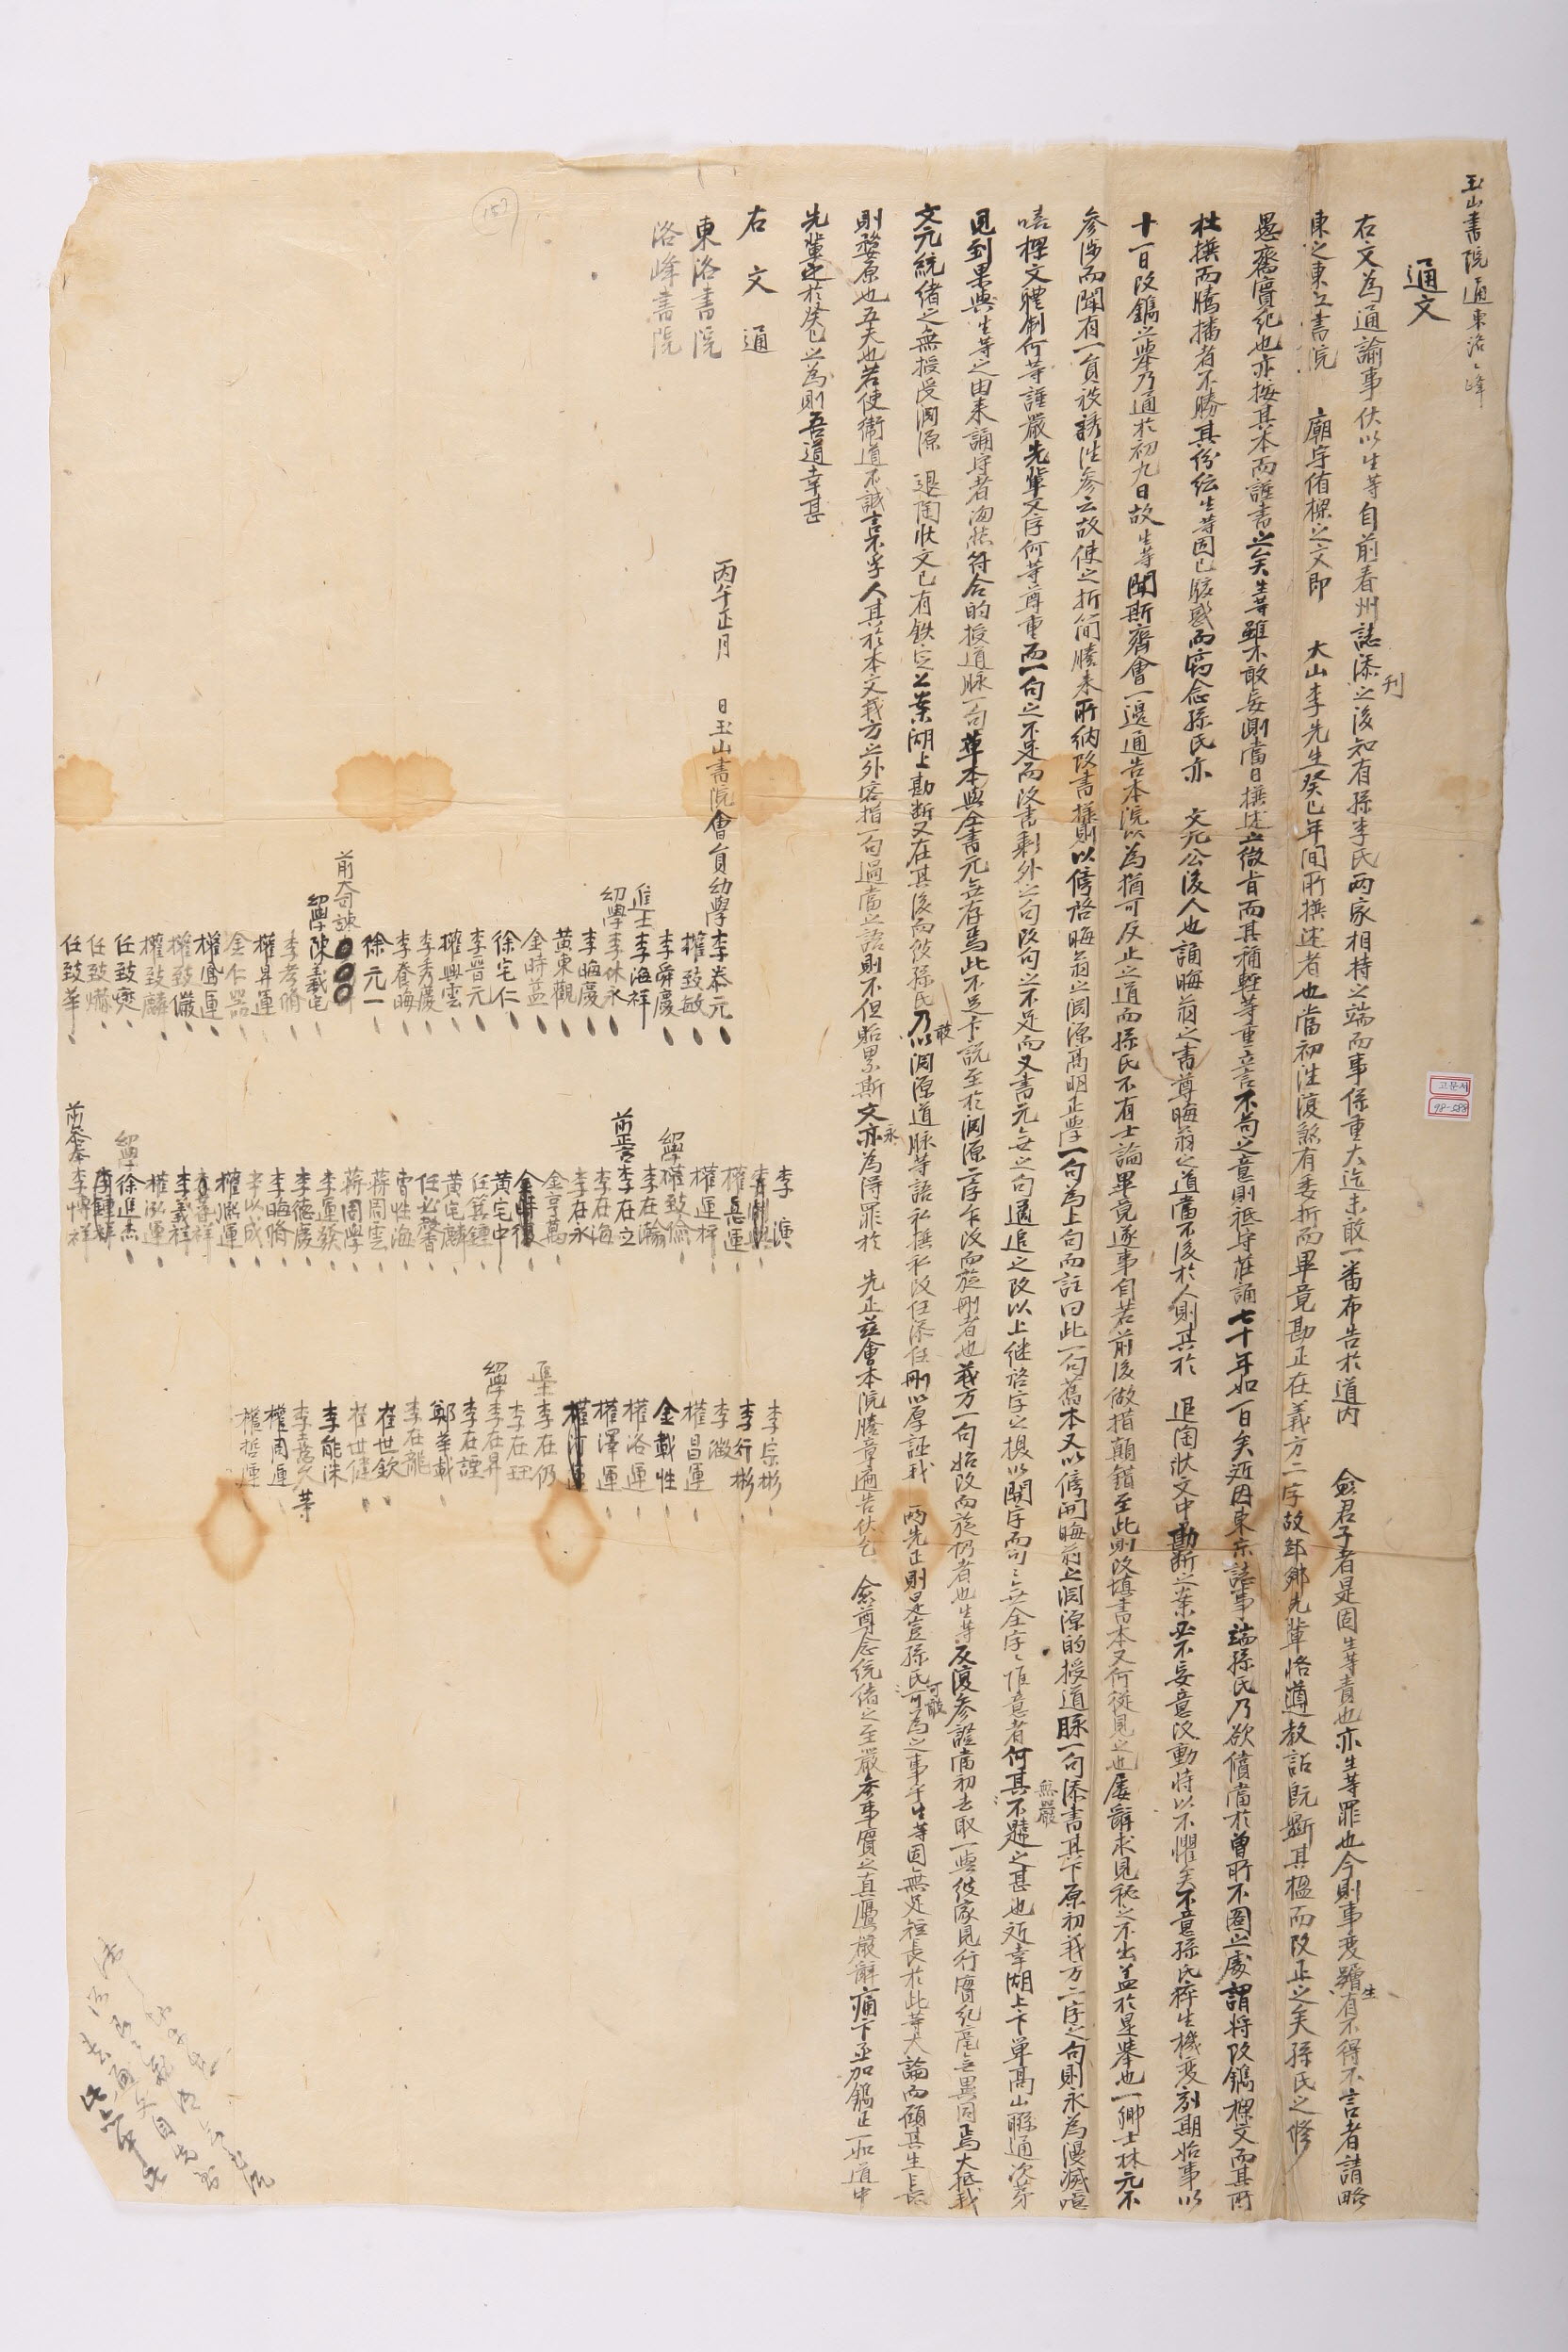 玉山書院通東洛ミ峰
通文
右文爲通諭事伏以生等自前春州誌添刊之後知有孫李氏兩家相持之端而事係重大迄未敢一番布告於道內 僉君子者是固生等責也亦生等罪也今則事變有不得不言者請略
陳之東江書院 廟宇侑樑之文卽 大山李先生癸巳年間所撰述者也當初往復煞有委折而畢竟勘正在義方二字故鄕先輩恪遵敎詔旣斲其楹而改正之矣孫氏之修
愚齋實紀也亦按其本而謹書之矣生等雖不敢妄測當日撰述之微旨而其稱輕等重立言不苟之意則祗守莊誦七十年如一日矣近因東京誌事端孫氏乃欲價當於曾所不圖之處謂將改鐫樑文而其所
杜撰而騰播者不勝其紛紜生等因已駭惑而竊念孫氏亦 文元公後人也誦晦翁之書尊晦翁之道當不後於人則其於 退陶狀文中勘斷之案必不妄意改動恃以不懼矣不意孫氏猝生機變刻期始事以
十一日改鐫之擧乃通於初九日故生等聞斯齊會一邊通告本院以爲猶可反止之道而孫氏不有士論畢竟遂事自若前後做措顚錯至此則改塡書本又何從見之也屢辭求見秘之不出盖於是擧也一鄕士林元不
參涉而聞有一員被誘往參云故使之折簡謄來所納改書樣則以傍啓晦翁之淵源高明正學一句爲上句而註曰此一句舊本又以傍開晦翁之淵源的授道脉一句添書其下原初義方二字之句則永爲漫滅噫
嘻樑文體制何等謹嚴先輩文字何等尊重而一句之不足而改書剩外之句改句之不足而又書元無之句適追之改以上繼啓字之換以開字而句ミ無全字ミ惟意者何其無嚴之甚也近幸湖上下單高山聯通次第
見到果與生等之由來誦守者沕然符合的授道脉一句草本與全書元無存焉此不足卞說至於淵源二字乍改而旋刪者也義方一句始改而旋仍者也生等反復參證當初去取一與彼家見行實紀毫無異同焉大抵我
文元統緖之無授受淵源 退陶狀文已有鐵定之案湖上勘斷又在其後而彼孫氏乃敢以淵源道脉等語私撰私改任添任刪以厚誣我 兩先正則是豈孫氏可敢爲之事乎生等固無足短長於此等大論而顧其生長
則婺原也五夫也若使衛道不誠言不孚人其於本文義方之外容措一句過當之語則不但貽累斯文亦永爲得罪於 先正玆會本院謄章通告伏乞 僉尊念統緖之至嚴參事實之眞贋嚴辭痛卞亟加鐫正一如道中
先輩之於癸巳之爲則吾道幸甚
右文通
東洛書院
洛峰書院
丙午正月 日玉山書院會員幼學李泰元
權致敏
李舜慶
進士李海祥
幼學李休永
李晦慶
黃東觀
金時益
徐宅仁
李晋元
權興雲
李秀慶
李養晦
徐元一
前大司諫
幼學陳義屯
李孝脩
權昇運
金仁器
權致儼
權致麟
任致爕
任致華
李演
權長運
權運枰
幼學權致倫
李在瀚
前正言李在立
李在海
李在永
金享萬
黃宅中
任箕鍾
黃宅麟
任必馨
曺性海
蔣周雲
蔣周學
李運發
李德慶
李晦脩
李以成
李義祥
權泓運
幼學徐進杰
前參奉李博祥
李宗彬
李行彬
李瀓
權昌運
金載性
權洛運
權澤運
進士李在仍
李在玨
幼學李在昇
李在謹
鄭華載
李在龍
崔世欽
崔世健
李能洙
權周運
權哲運
等